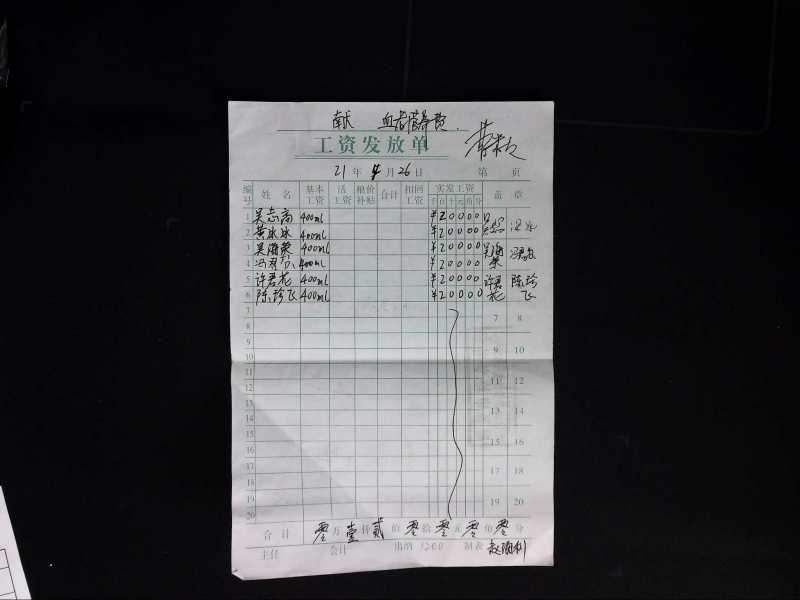 献 血者营养费
工资发放单
21年4月26日 第 页
编号 姓名 基本工资 活工资 粮价补贴 合计 扣回工资 实发工资 盖章
千百十元角分
1 吴志高 400ml ¥20000
2 黄冰冰 400ml ¥20000
3 吴海荣 400ml ¥20000 吴海荣
4 400ml ¥20000
5 许君花 400ml ¥20000 许君花
6 陈珍飞 400ml ¥20000 陈珍飞
7 7 8
8
9 9 10
10
11 11 12
12
13 13 14
14
15 15 16
16
17 17 18
18
19 19 20
20
合计 零万壹仟贰佰零拾零元零角零分
主任 会计 出纳 1200 制表